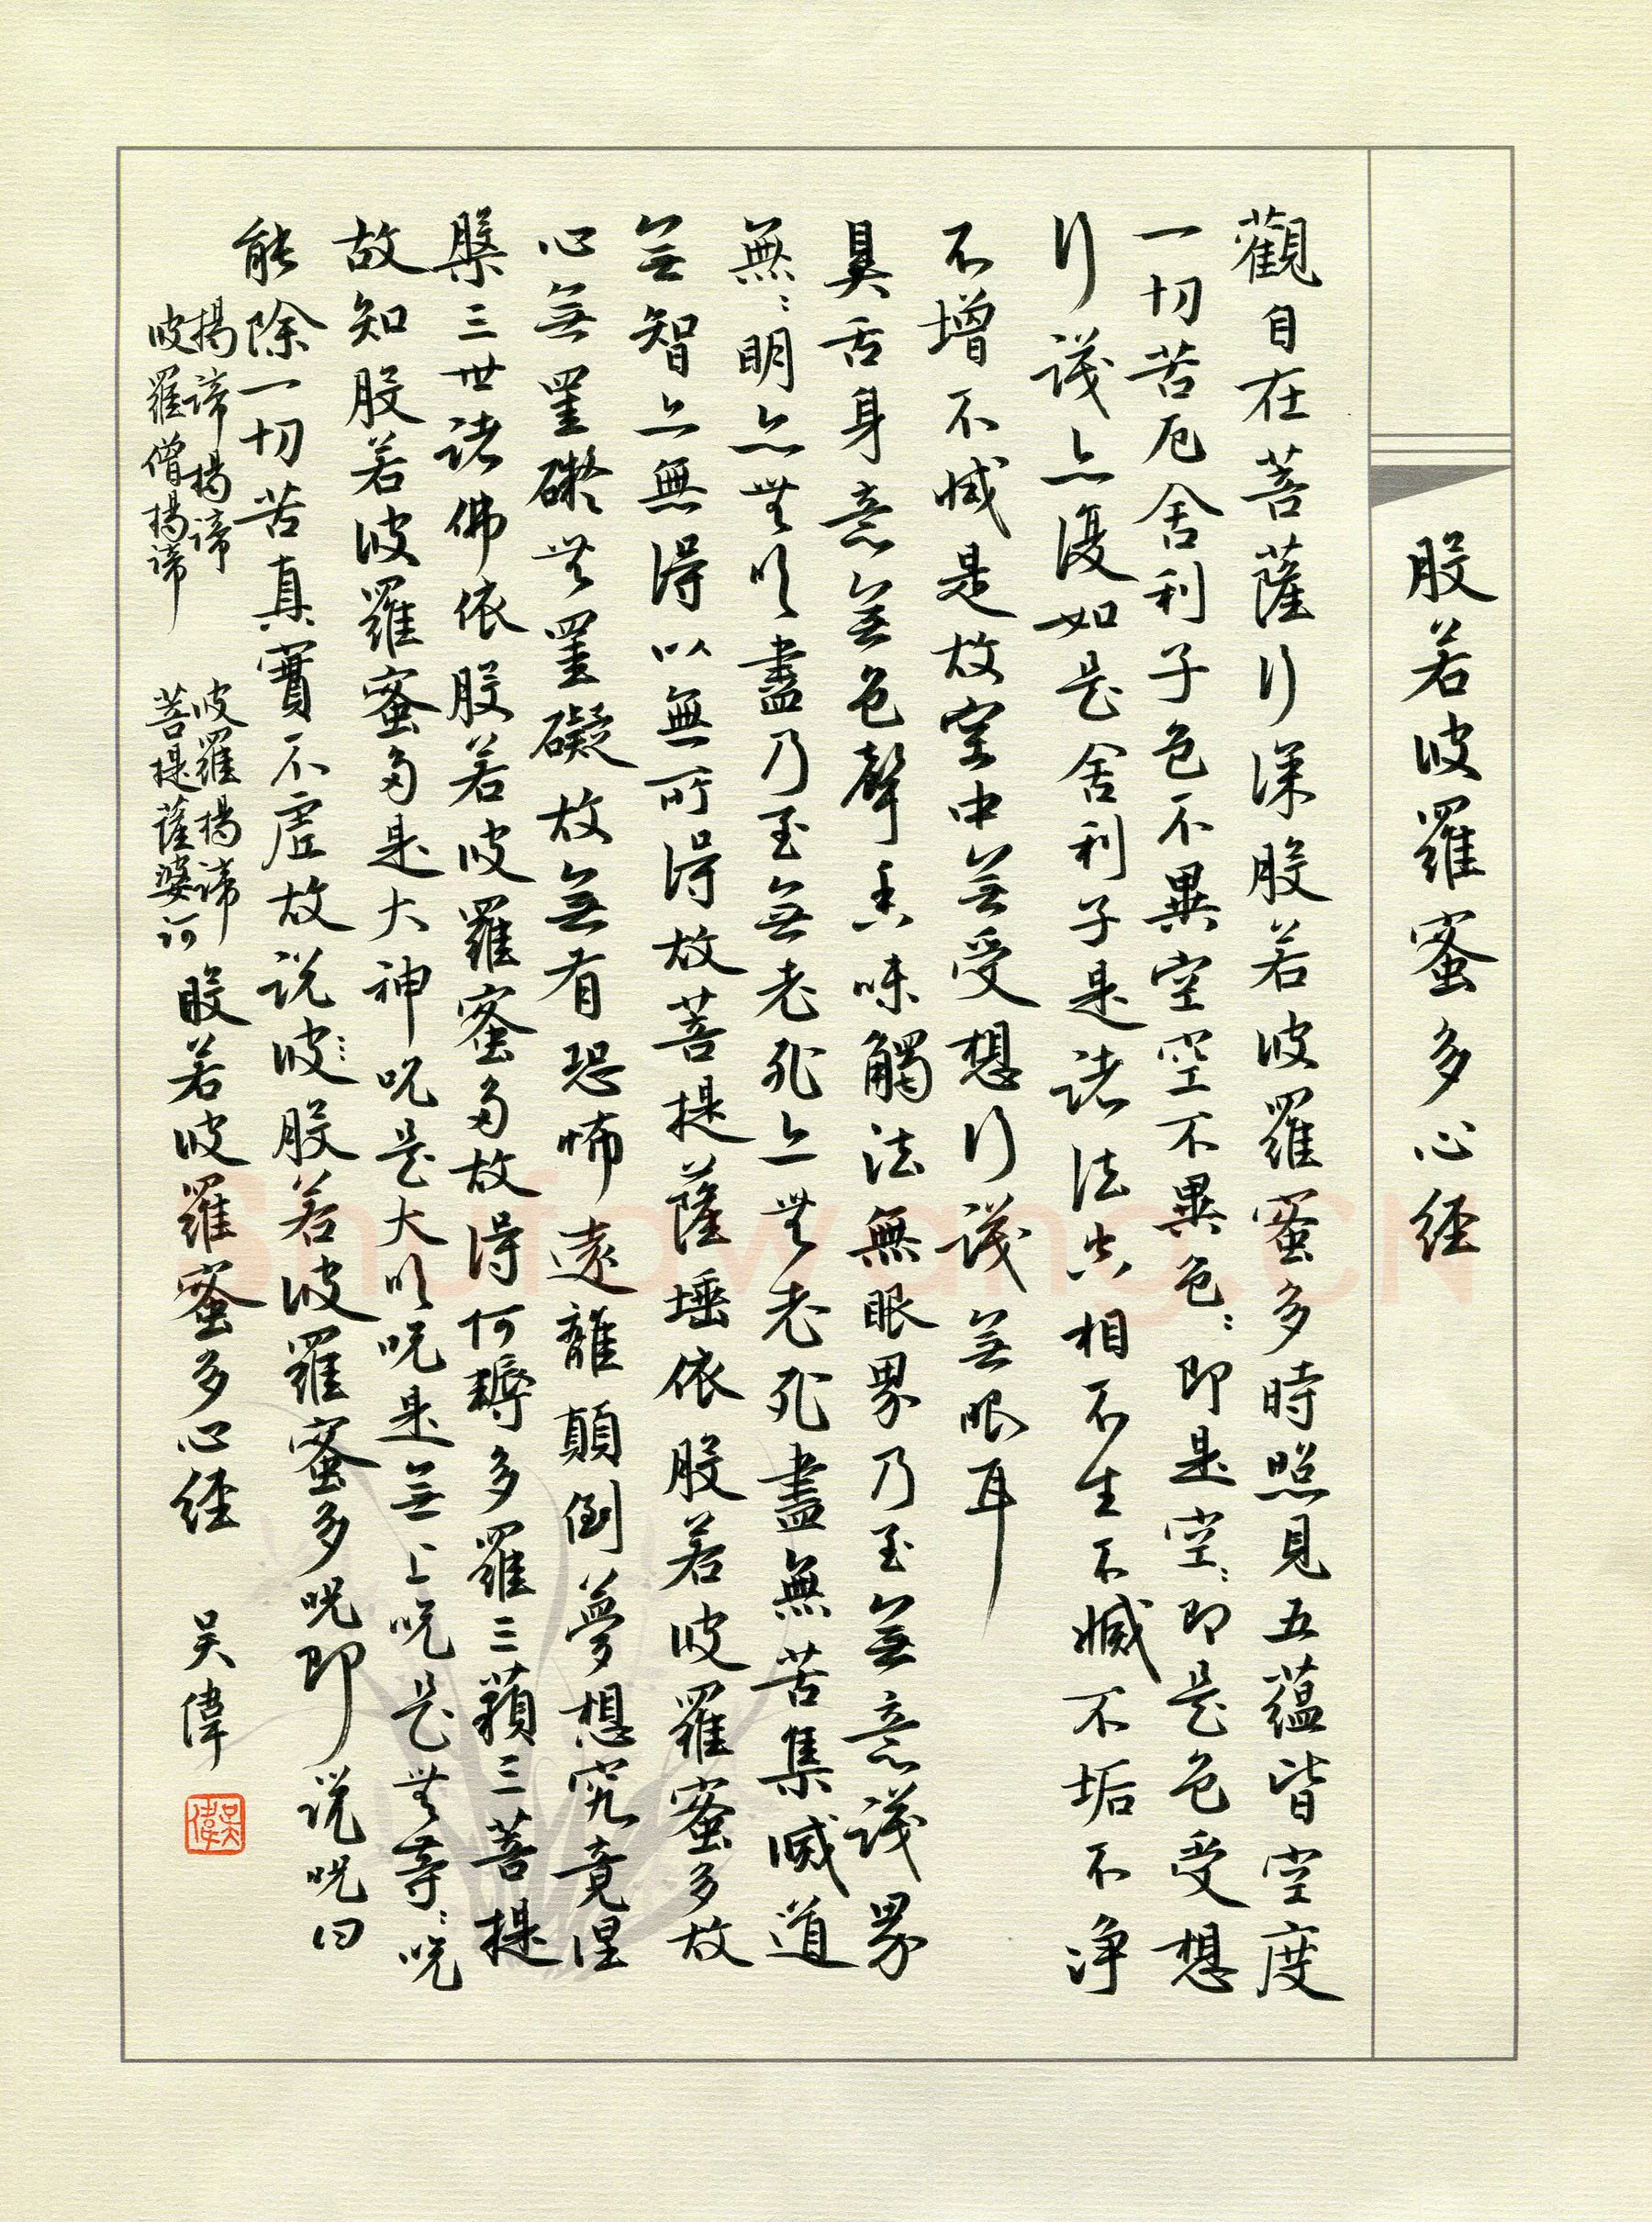 般若波羅蜜多心経
觀自在菩薩行深般若波羅蜜多時照見五蘊皆空度
一切苦厄舍利子色不異空空不異色:即是空:即是色受想
行識亦復如是舍利子是諸法空相不生不滅不垢不净
不增不減是故空中無受想行識無眼耳
鼻舌身意無色聲香味觸法無眼界乃至無意識界
無:明亦無明盡乃至無老死亦無老死盡無苦集滅道
無智亦無得以無所得故菩提薩埵依般若波羅蜜多故
心無罣礙無罣礙故無有恐怖遠離顛倒夢想究竟涅
槃三世諸佛依般若波羅蜜多故得何耨多羅三藐三菩提
故知般若波羅蜜多是大神呪是大明呪是無上呪是無等:呪
能除一切苦真實不虛故说波:般若波羅蜜多呪即説呪曰
揭諦揭諦 波羅揭諦
波羅僧揭諦 菩提薩婆訶
般若波羅蜜多心経 吴偉
吴偉
Shufawang.CN